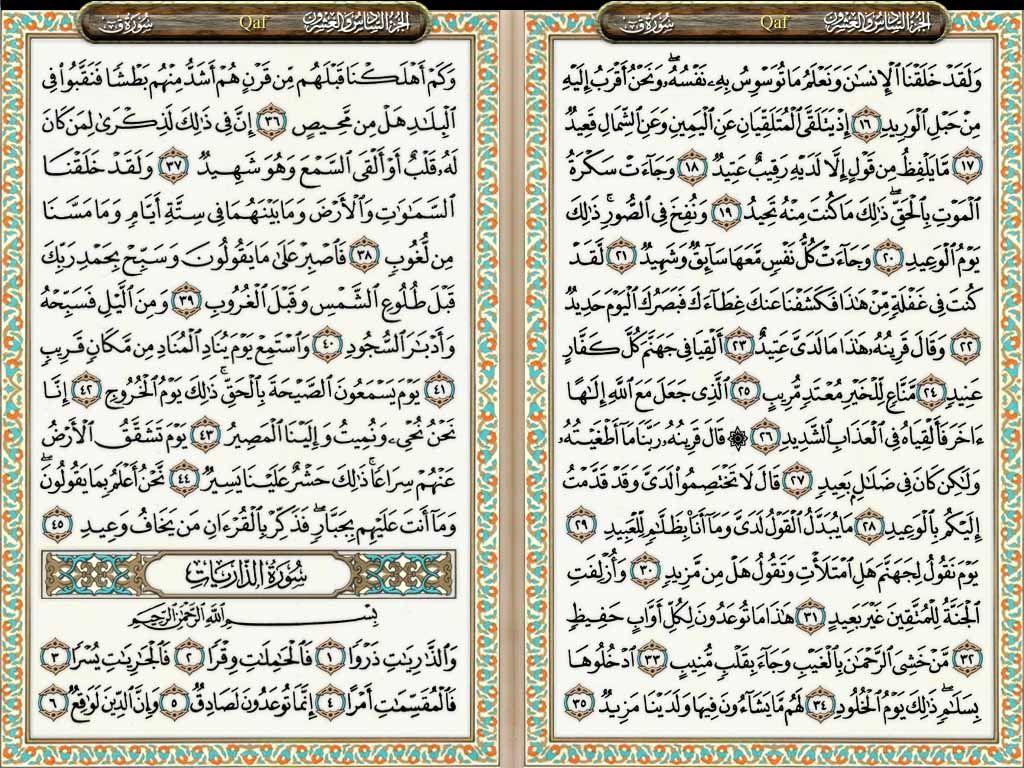 سُورَةُ ق Qaf الجزء السادس والعشرون
وَلَقَدْ خَلَقْنَا ٱلْإِنسَـٰنَ وَنَعْلَمُ مَا تُوَسْوِسُ بِهِۦ نَفْسُهُۥ ۖ وَنَحْنُ أَقْرَبُ إِلَيْهِ
مِنْ حَبْلِ ٱلْوَرِيدِ ١٦ إِذْ يَتَلَقَّى ٱلْمُتَلَقِّيَانِ عَنِ ٱلْيَمِينِ وَعَنِ ٱلشِّمَالِ قَعِيدٌ
١٧ مَّا يَلْفِظُ مِن قَوْلٍ إِلَّا لَدَيْهِ رَقِيبٌ عَتِيدٌ ١٨ وَجَآءَتْ سَكْرَةُ
ٱلْمَوْتِ بِٱلْحَقِّ ۖ ذَٰلِكَ مَا كُنتَ مِنْهُ تَحِيدُ ١٩ وَنُفِخَ فِى ٱلصُّورِ ۚ ذَٰلِكَ
يَوْمُ ٱلْوَعِيدِ ٢٠ وَجَآءَتْ كُلُّ نَفْسٍ مَّعَهَا سَآئِقٌ وَشَهِيدٌ ٢١ لَّقَدْ
كُنتَ فِى غَفْلَةٍ مِّنْ هَـٰذَا فَكَشَفْنَا عَنكَ غِطَآءَكَ فَبَصَرُكَ ٱلْيَوْمَ حَدِيدٌ
٢٢ وَقَالَ قَرِينُهُۥ هَـٰذَا مَا لَدَىَّ عَتِيدٌ ٢٣ أَلْقِيَا فِى جَهَنَّمَ كُلَّ كَفَّارٍ
عَنِيدٍ ٢٤ مَّنَّاعٍ لِّلْخَيْرِ مُعْتَدٍ مُّرِيبٍ ٢٥ ٱلَّذِى جَعَلَ مَعَ ٱللَّهِ إِلَـٰهًا
ءَاخَرَ فَأَلْقِيَاهُ فِى ٱلْعَذَابِ ٱلشَّدِيدِ ٢٦ ۞ قَالَ قَرِينُهُۥ رَبَّنَا مَآ أَطْغَيْتُهُۥ
وَلَـٰكِن كَانَ فِى ضَلَـٰلٍۭ بَعِيدٍ ٢٧ قَالَ لَا تَخْتَصِمُوا۟ لَدَىَّ وَقَدْ قَدَّمْتُ
إِلَيْكُم بِٱلْوَعِيدِ ٢٨ مَا يُبَدَّلُ ٱلْقَوْلُ لَدَىَّ وَمَآ أَنَا۠ بِظَلَّـٰمٍ لِّلْعَبِيدِ ٢٩
يَوْمَ نَقُولُ لِجَهَنَّمَ هَلِ ٱمْتَلَأْتِ وَتَقُولُ هَلْ مِن مَّزِيدٍ ٣٠ وَأُزْلِفَتِ
ٱلْجَنَّةُ لِلْمُتَّقِينَ غَيْرَ بَعِيدٍ ٣١ هَـٰذَا مَا تُوعَدُونَ لِكُلِّ أَوَّابٍ حَفِيظٍ
٣٢ مَّنْ خَشِىَ ٱلرَّحْمَـٰنَ بِٱلْغَيْبِ وَجَآءَ بِقَلْبٍ مُّنِيبٍ ٣٣ ٱدْخُلُوهَا
بِسَلَـٰمٍ ۖ ذَٰلِكَ يَوْمُ ٱلْخُلُودِ ٣٤ لَهُم مَّا يَشَآءُونَ فِيهَا وَلَدَيْنَا مَزِيدٌ ٣٥
سُورَةُ ق Qaf الجزء السادس والعشرون
وَكَمْ أَهْلَكْنَا قَبْلَهُم مِّن قَرْنٍ هُمْ أَشَدُّ مِنْهُم بَطْشًا فَنَقَّبُوا۟ فِى
ٱلْبِلَـٰدِ هَلْ مِن مَّحِيصٍ ٣٦ إِنَّ فِى ذَٰلِكَ لَذِكْرَىٰ لِمَن كَانَ
لَهُۥ قَلْبٌ أَوْ أَلْقَى ٱلسَّمْعَ وَهُوَ شَهِيدٌ ٣٧ وَلَقَدْ خَلَقْنَا
ٱلسَّمَـٰوَٰتِ وَٱلْأَرْضَ وَمَا بَيْنَهُمَا فِى سِتَّةِ أَيَّامٍ وَمَا مَسَّنَا
مِن لُّغُوبٍ ٣٨ فَٱصْبِرْ عَلَىٰ مَا يَقُولُونَ وَسَبِّحْ بِحَمْدِ رَبِّكَ
قَبْلَ طُلُوعِ ٱلشَّمْسِ وَقَبْلَ ٱلْغُرُوبِ ٣٩ وَمِنَ ٱلَّيْلِ فَسَبِّحْهُ
وَأَدْبَـٰرَ ٱلسُّجُودِ ٤٠ وَٱسْتَمِعْ يَوْمَ يُنَادِ ٱلْمُنَادِ مِن مَّكَانٍ قَرِيبٍ
٤١ يَوْمَ يَسْمَعُونَ ٱلصَّيْحَةَ بِٱلْحَقِّ ۚ ذَٰلِكَ يَوْمُ ٱلْخُرُوجِ ٤٢ إِنَّا
نَحْنُ نُحْىِۦ وَنُمِيتُ وَإِلَيْنَا ٱلْمَصِيرُ ٤٣ يَوْمَ تَشَقَّقُ ٱلْأَرْضُ
عَنْهُمْ سِرَاعًا ۚ ذَٰلِكَ حَشْرٌ عَلَيْنَا يَسِيرٌ ٤٤ نَّحْنُ أَعْلَمُ بِمَا يَقُولُونَ ۖ
وَمَآ أَنتَ عَلَيْهِم بِجَبَّارٍ ۖ فَذَكِّرْ بِٱلْقُرْءَانِ مَن يَخَافُ وَعِيدِ ٤٥
سُورَةُ الذَّارِيَاتِ
بِسْمِ ٱللَّهِ ٱلرَّحْمَـٰنِ ٱلرَّحِيمِ
وَٱلذَّٰرِيَـٰتِ ذَرْوًا ١ فَٱلْحَـٰمِلَـٰتِ وِقْرًا ٢ فَٱلْجَـٰرِيَـٰتِ يُسْرًا ٣
فَٱلْمُقَسِّمَـٰتِ أَمْرًا ٤ إِنَّمَا تُوعَدُونَ لَصَادِقٌ ٥ وَإِنَّ ٱلدِّينَ لَوَٰقِعٌ ٦